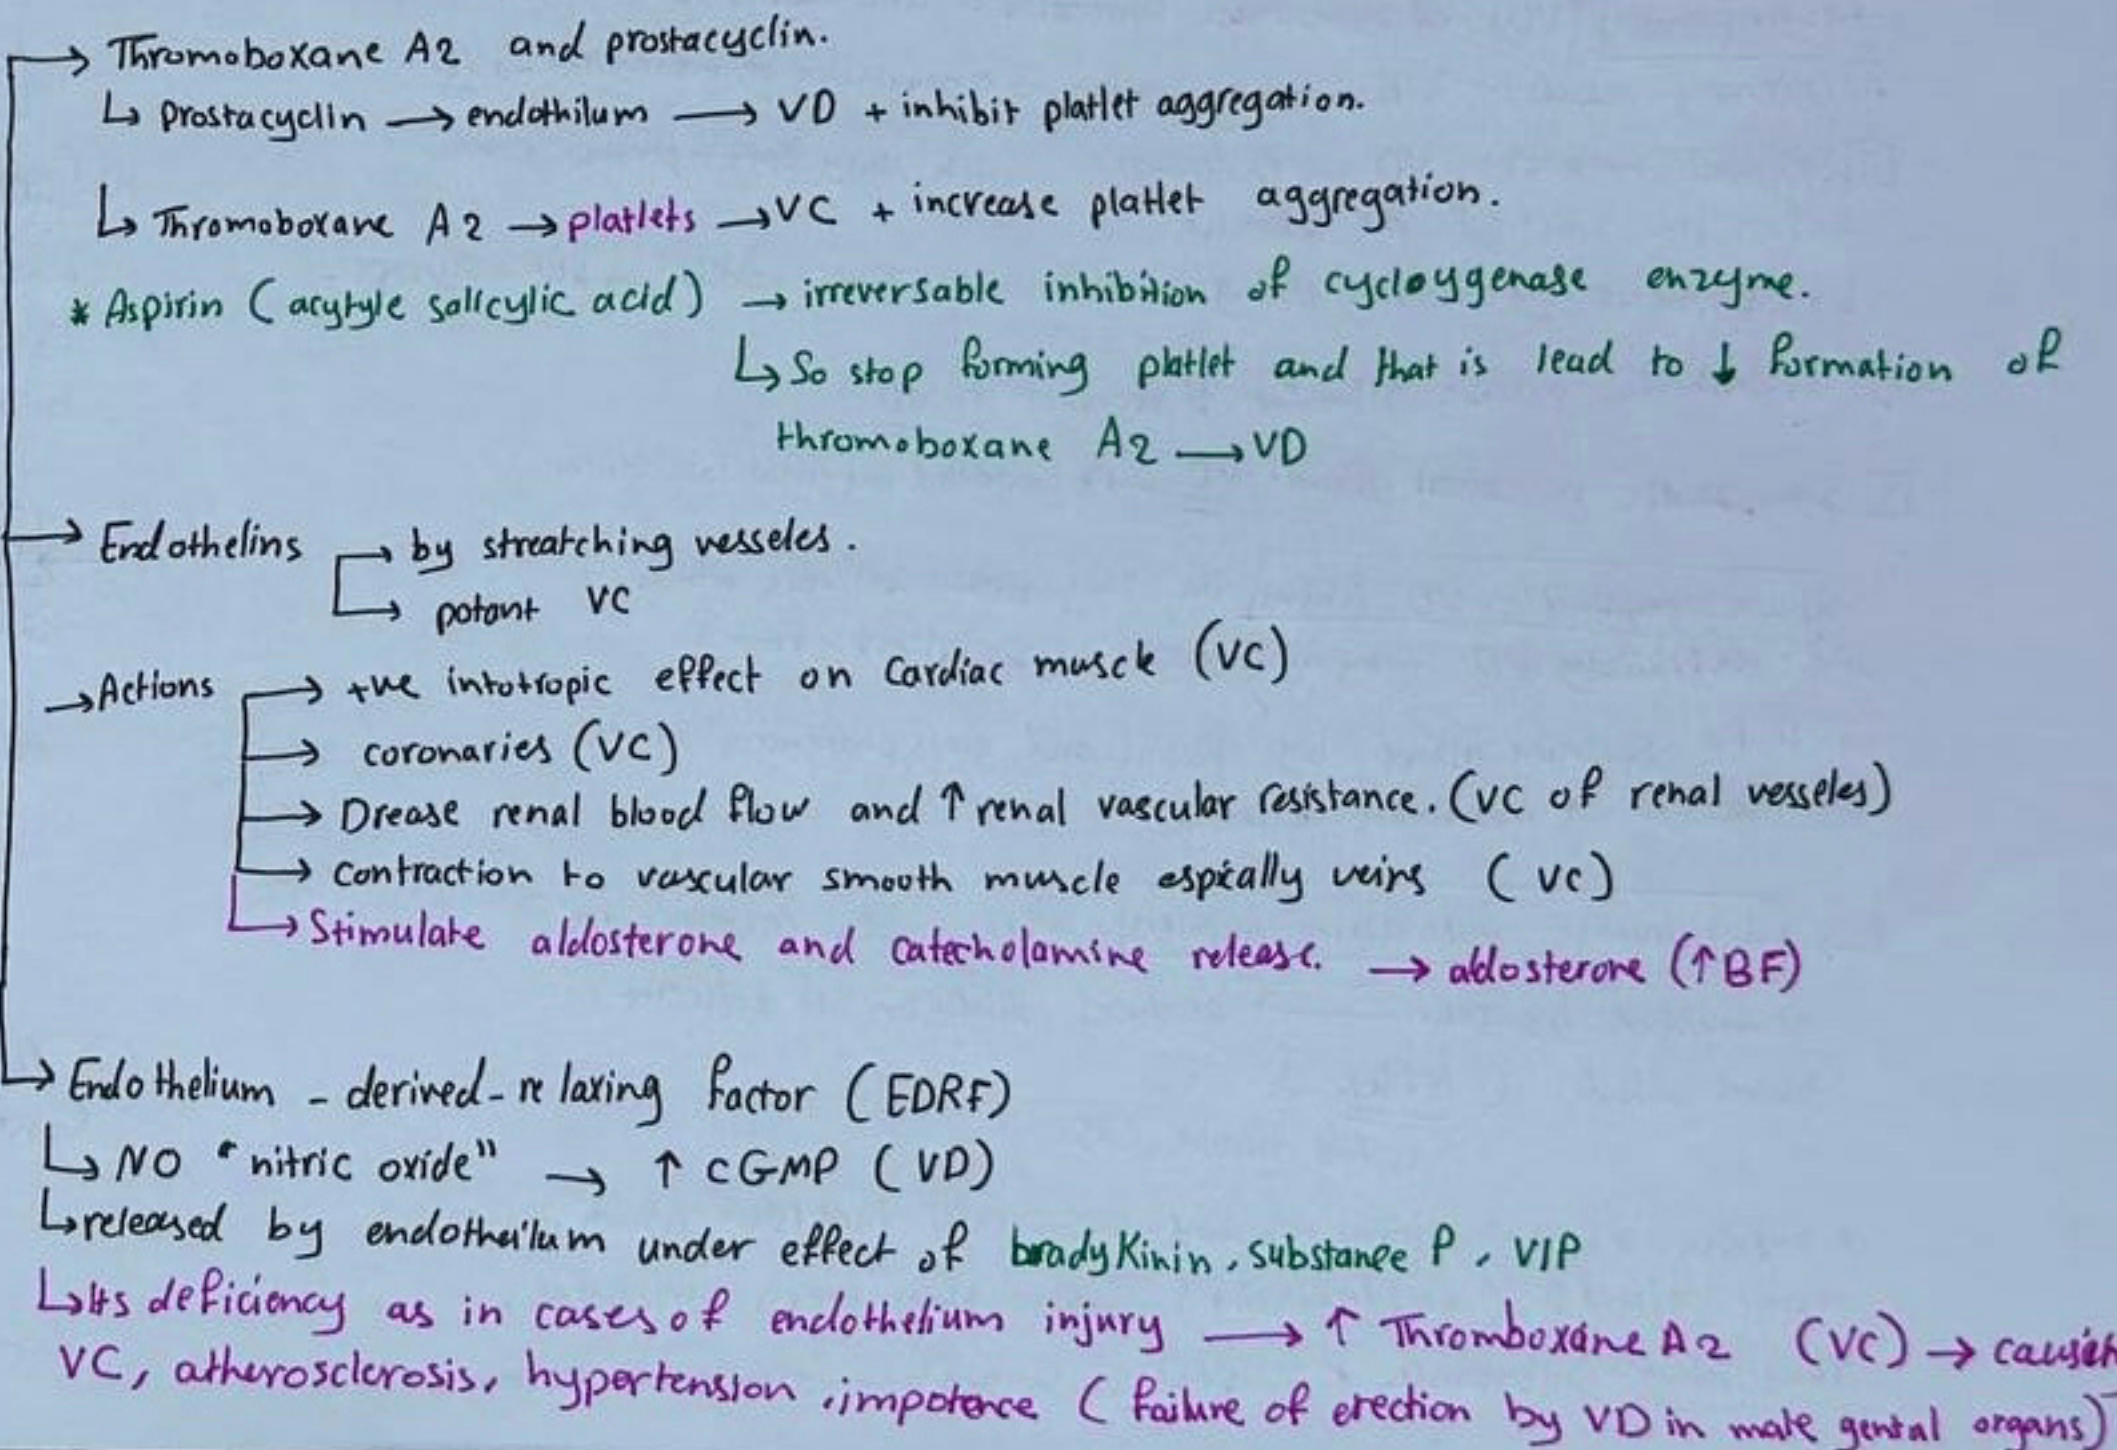 → Thromoboxane A2 and prostacyclin.
↳ prostacyclin → endothilum → VD + inhibit platlet aggregation.
↳ Thromoboxane A2 → platlets → VC + increase platlet aggregation.
* Aspirin (acytyle salicylic acid) → irreversable inhibition of cycloygenase enzyme.
↳ So stop forming platlet and that is lead to ↓ formation of
thromoboxane A2 → VD
→ Endothelins → by streatching vesseles.
→ potant VC
→ Actions → +ve intotropic effect on Cardiac muscle (VC)
→ coronaries (VC)
→ Drease renal blood flow and ↑ renal vascular resistance. (VC of renal vesseles)
→ contraction to vascular smooth muscle espically veins (VC)
→ Stimulate aldosterone and catecholamine release. → aldosterone (↑BF)
→ Endothelium - derived - relaxing factor (EDRF)
↳ NO "nitric oxide" → ↑ cGMP (VD)
↳ released by endotheilum under effect of bradyKinin, substance P, VIP
↳ Its deficiency as in cases of endothelium injury → ↑ Thromboxane A2 (VC) →
VC, atherosclerosis, hypertension, impotence (failure of erection by VD in male gental organs)